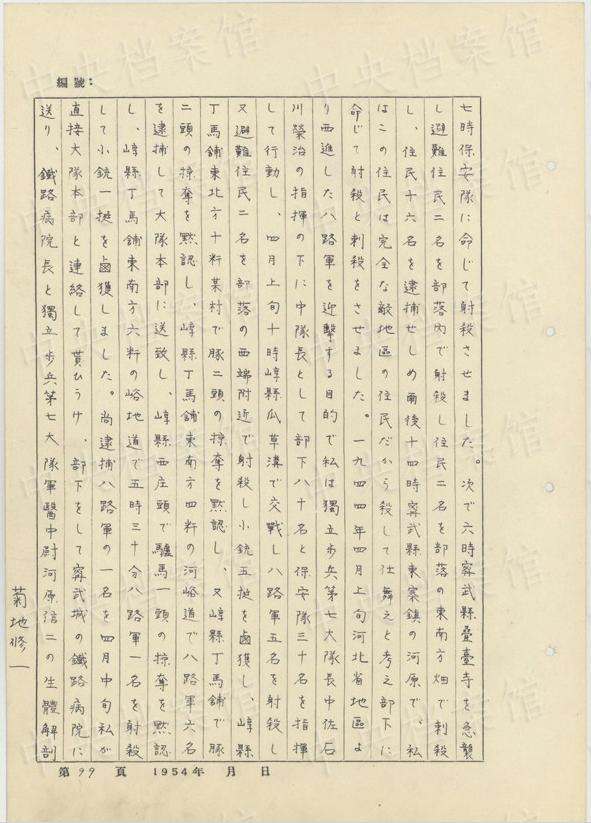 編號：
七時保安隊に命じて射殺させました。次で六時寗武縣疊臺寺を急襲
し避難住民二名を部落內で射殺し住民二名を部落の東南方畑で刺殺
し、住民十六名を逮捕せしめ爾後十四時寗武縣東寨鎮の河原で、私
はこの住民は完全な敵地區の住民だから殺して仕舞えと考え部下に
命じて射殺と刺殺をさせました。一九四四年四月上旬河北省地區よ
り西進した八路軍を迎擊する目的で私は獨立步兵第七大隊長中佐石
川榮治の指揮の下に中隊長として部下八十名と保安隊三十名を指揮
して行動し、四月上旬十時崞縣瓜草溝で交戰し八路軍五名を射殺し
又避難住民二名を部落の西端附近で射殺し小銃五挺を鹵獲し、崞縣
丁馬舖東北方十粁某村で豚二頭の掠奪を黙認し、又崞縣丁馬舖で豚
二頭の掠奪を黙認し、崞縣丁馬舖東南方四粁の河峪道で八路軍六名
を逮捕して大隊本部に送致し、崞縣西庄頭で驢馬一頭の掠奪を黙認
し、崞縣丁馬舖東南方六粁の峪地道で五時三十分八路軍一名を射殺
して小銃一挺を鹵獲しました。尚逮捕八路軍の一名を四月中旬私が
直接大隊本部と連絡して貰ひうけ、部下をして寗武城の鐵路病院に
送り、鐵路病院長と獨立步兵第七大隊軍醫中尉河原信二の生體解剖
菊地修一
第99頁 1954年 月 日
中央档案馆